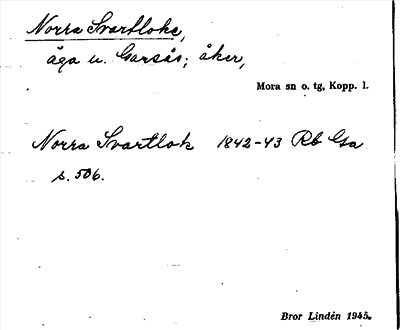 Norra Svartloke,
äga u. Garsås; åker,
Mora sn o. tg, Kopp. l.
Norra Svartlok 1842-43 Rb Gsa
s. 506.
Bror Lindén 1945.